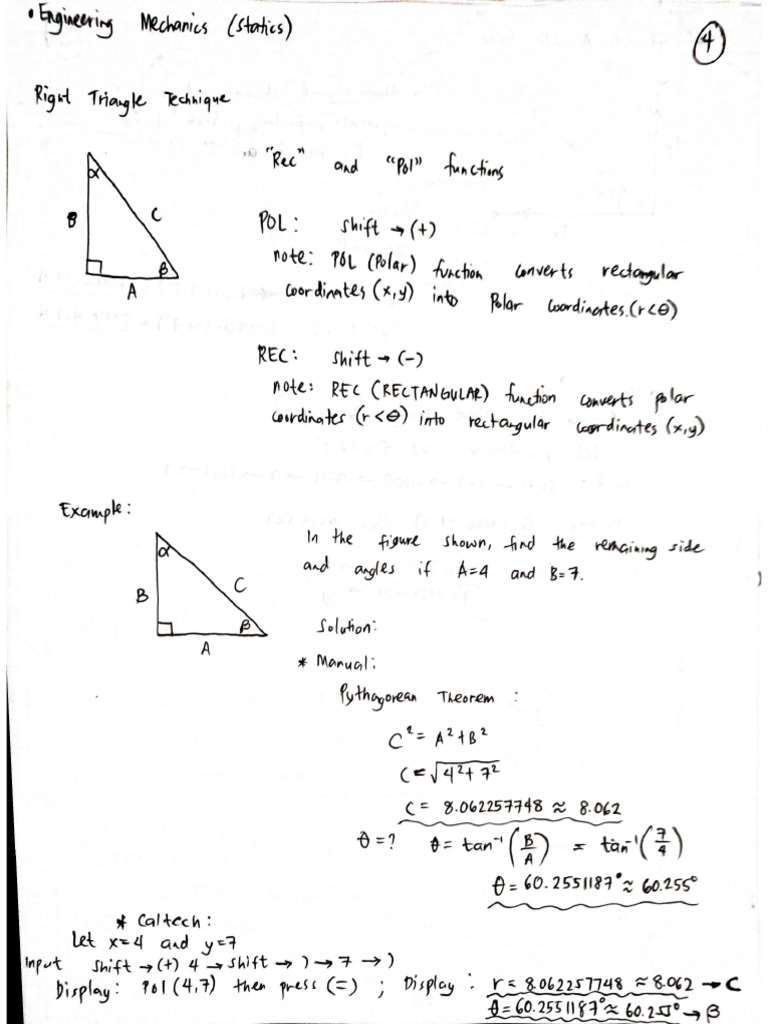 • Engineering Mechanics (Statics)
4
Right Triangle Technique
α
B
C
β
A
"Rec" and "Pol" functions
POL: shift → (+)
note: POL (Polar) function converts rectangular
coordinates (x,y) into Polar coordinates. (r<θ)
REC: shift → (-)
note: REC (RECTANGULAR) function converts polar
coordinates (r<θ) into rectangular coordinates (x,y)
Example:
α
B
C
β
A
In the figure shown, find the remaining side
and angles if A=4 and B=7.
Solution:
* Manual:
Pythagorean Theorem :
C² = A² + B²
C = √4² + 7²
C = 8.062257748 ≈ 8.062
θ = ? θ = tan⁻¹ (B/A) = tan⁻¹ (7/4)
θ = 60.2551187° ≈ 60.255°
* Caltech:
Let x=4 and y=7
Input shift → (+) 4 → shift → ) → 7 → )
Display: Pol (4,7) then press (=) ; Display : r = 8.062257748 ≈ 8.062 → C
θ = 60.2551187° ≈ 60.255° → β